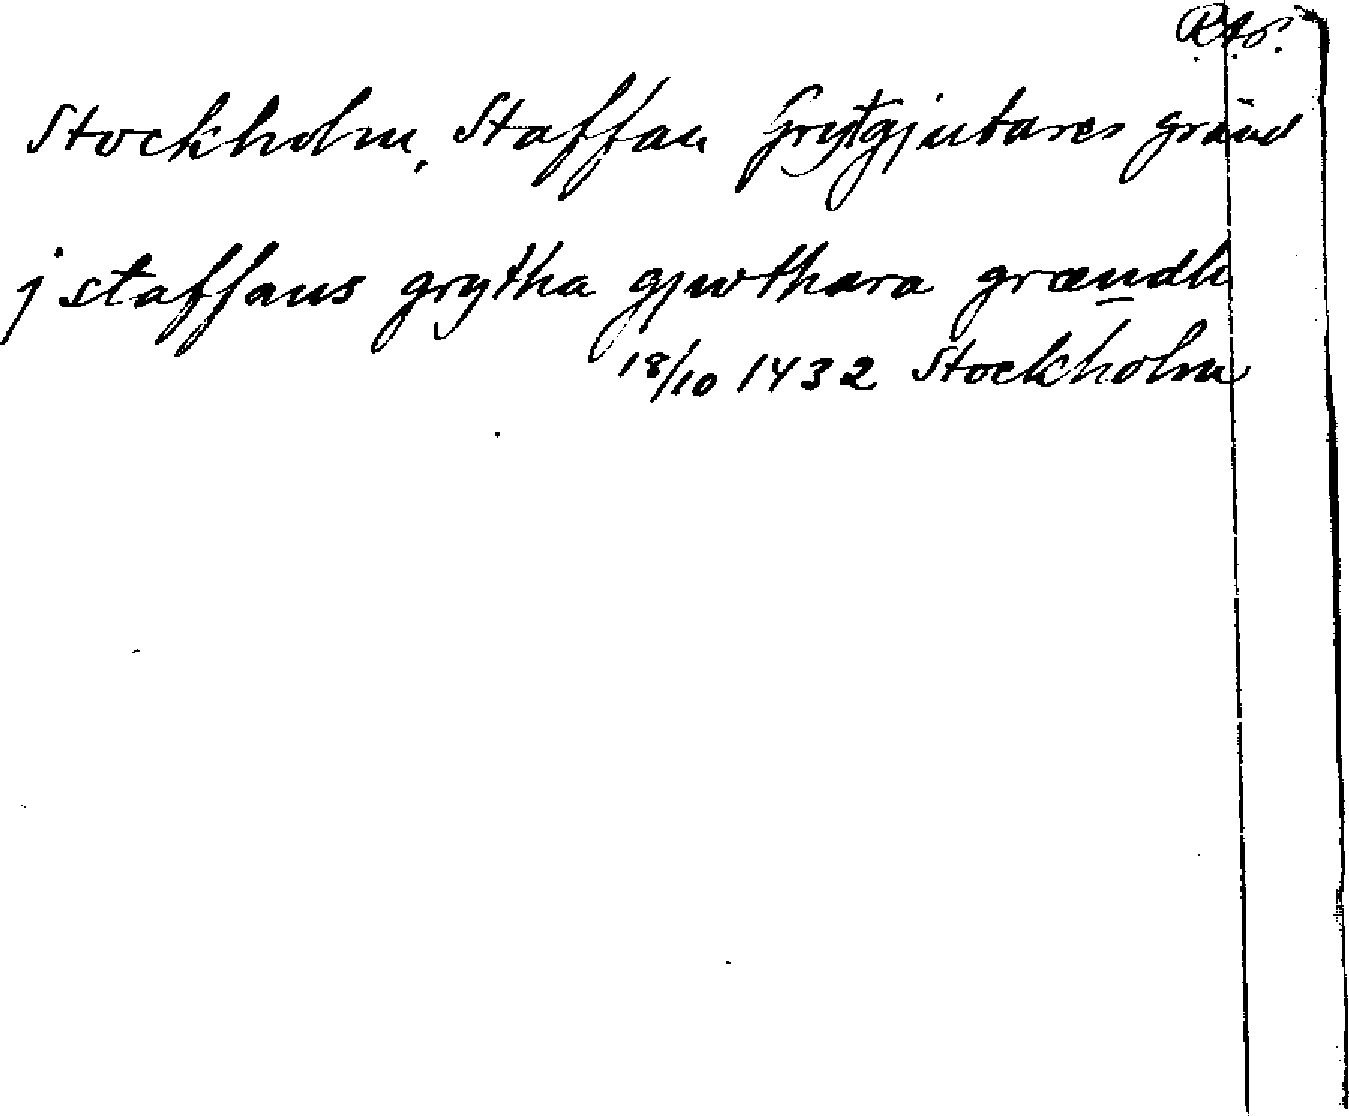 R.A.P.
Stockholm, Staffan Grytgjutares gränd
j staffans grytha gjwthara grændh
18/10 1432 Stockholm